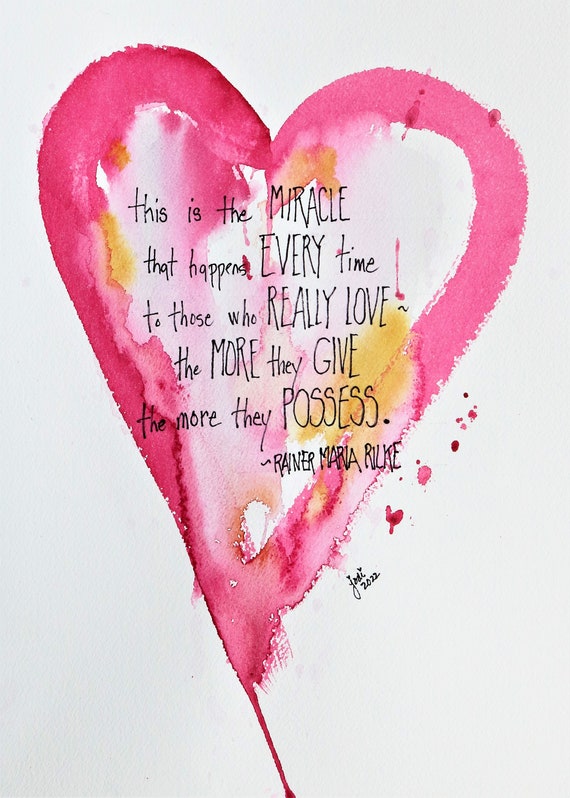 this is the MIRACLE
that happens EVERY time
to those who REALLY LOVE ~
the MORE they GIVE
the more they POSSESS.
~RAINER MARIA RILKE
Jodi
2022